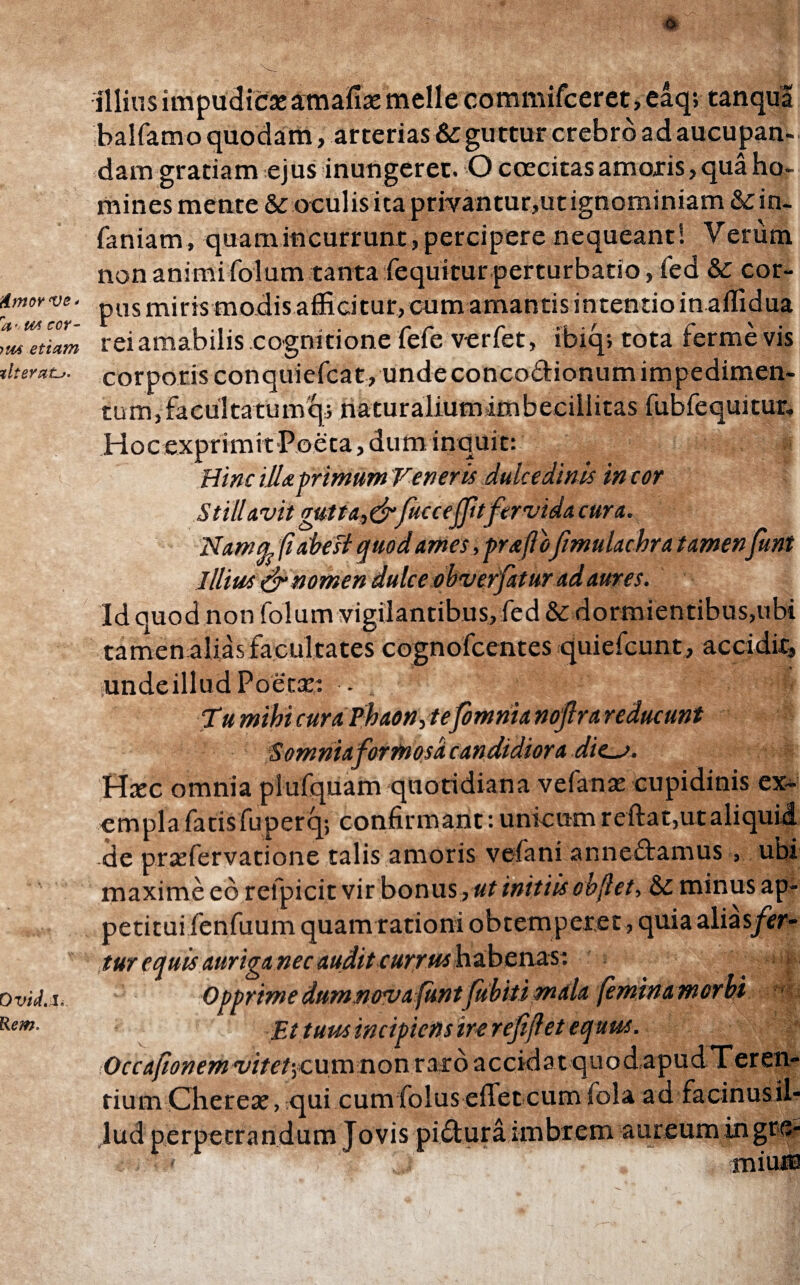 illius impudicæ amasiæ melle commisceret, eâq; tanquã
balsamo quodam, arterias & guttur crebrò ad aucupan-
dam gratiam ejus inungeret. O cœcitas amoris, quâ ho-
mines mente & oculis ita privantur, ut ignominiam & in-
saniam, quam incurrunt, percipere nequeant! Verùm
non animi solum tanta sequitur perturbatio, sed & cor-
Amor ve-
pus miris modis afficitur, cum amantis intentio in assidua
us cor-
rei amabilis cognitione sese verset, ibiq; tota fermè vis
us etiam
corporis conquiescat, unde concoctionum impedimen-
alterat.
tum, facultatumq; naturalium imbecillitas subsequitur.
Hoc exprimit Poëta, dum inquit:
Hinc illæ primum Veneris dulcedinis in cor
Stillavit gutta, & successit fervida cura.
Namq; si abest quod ames, præstò simulachra tamen sunt
Illius & nomen dulce obversatur ad aures.
Id quod non solum vigilantibus, sed & dormientibus, ubi
tamen aliàs facultates cognoscentes quiescunt, accidit,
unde illud Poëtæ:
Tu mihi cura Phaon, te somnia nostra reducunt
Somnia formosâ candidiora die.
Hæc omnia plusquam quotidiana vesanæ cupidinis ex-
empla satis superq; confirmant: unicum restat, ut aliquid
de præservatione talis amoris vesani annectamus, ubi
maximè eò respicit vir bonus, ut initiis obstet, & minus ap-
petitui sensuum quam rationi obtemperet, quia aliàs fer-
tur equis auriga nec audit currus habenas:
Ovid. 1.
Opprime dum nova sunt subiti mala semina morbi
Rem.
Et tuus incipiens ire resistet equus.
Occasionem vitet; cum non rarò accidat quod apud Teren-
tium Chereæ, qui cum solus esset cum sola ad facinus il-
lud perpetrandum Jovis picturâ imbrem aureum in gre-
mium